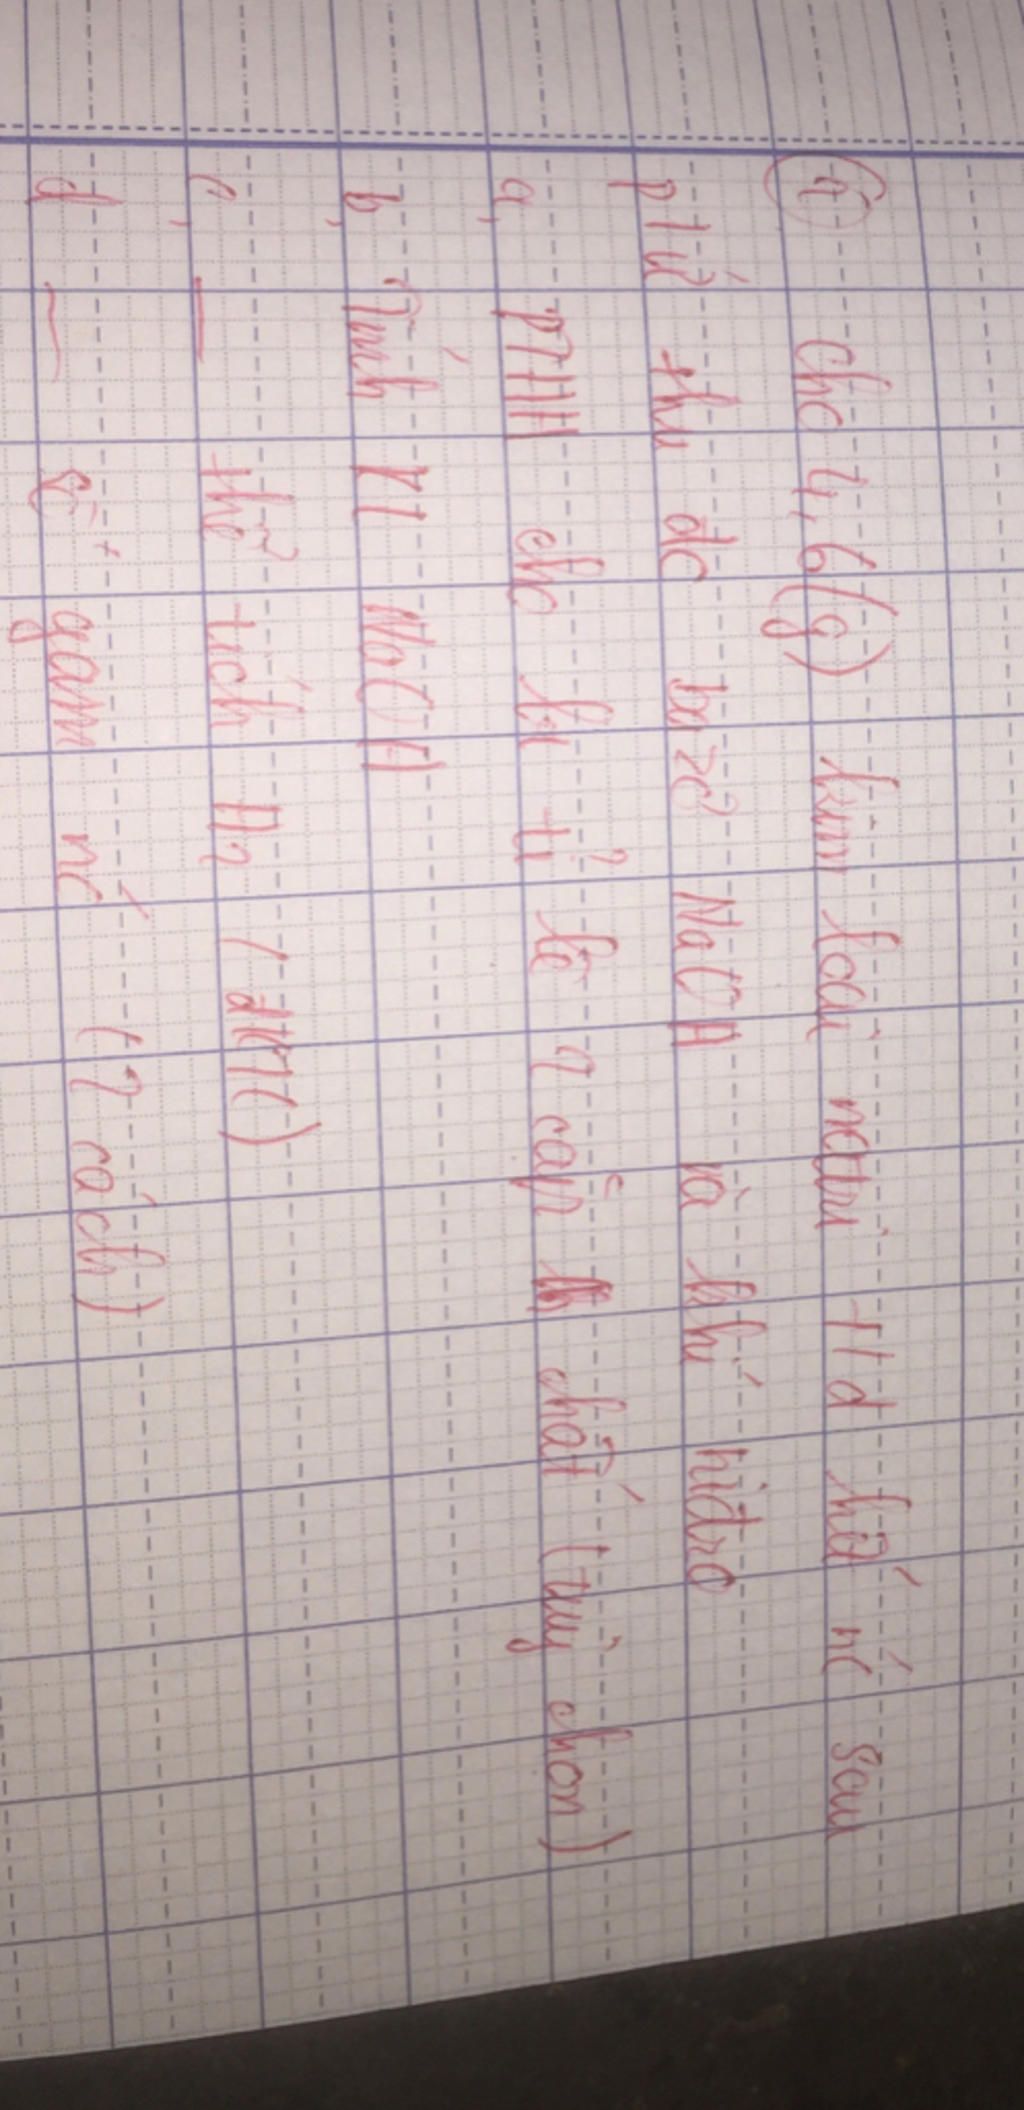 4 Cho 4,6(g) kim loại natri t/d hết nc sau
p/ứ thu dc bazơ NaOH và khí hidro
a, PTHH cho bt tỉ lệ 2 cặp chất (tuỳ chọn)
b, Tính KL NaOH
c, — thể tích H2 (đktc)
d, — gam nc (2 cách)